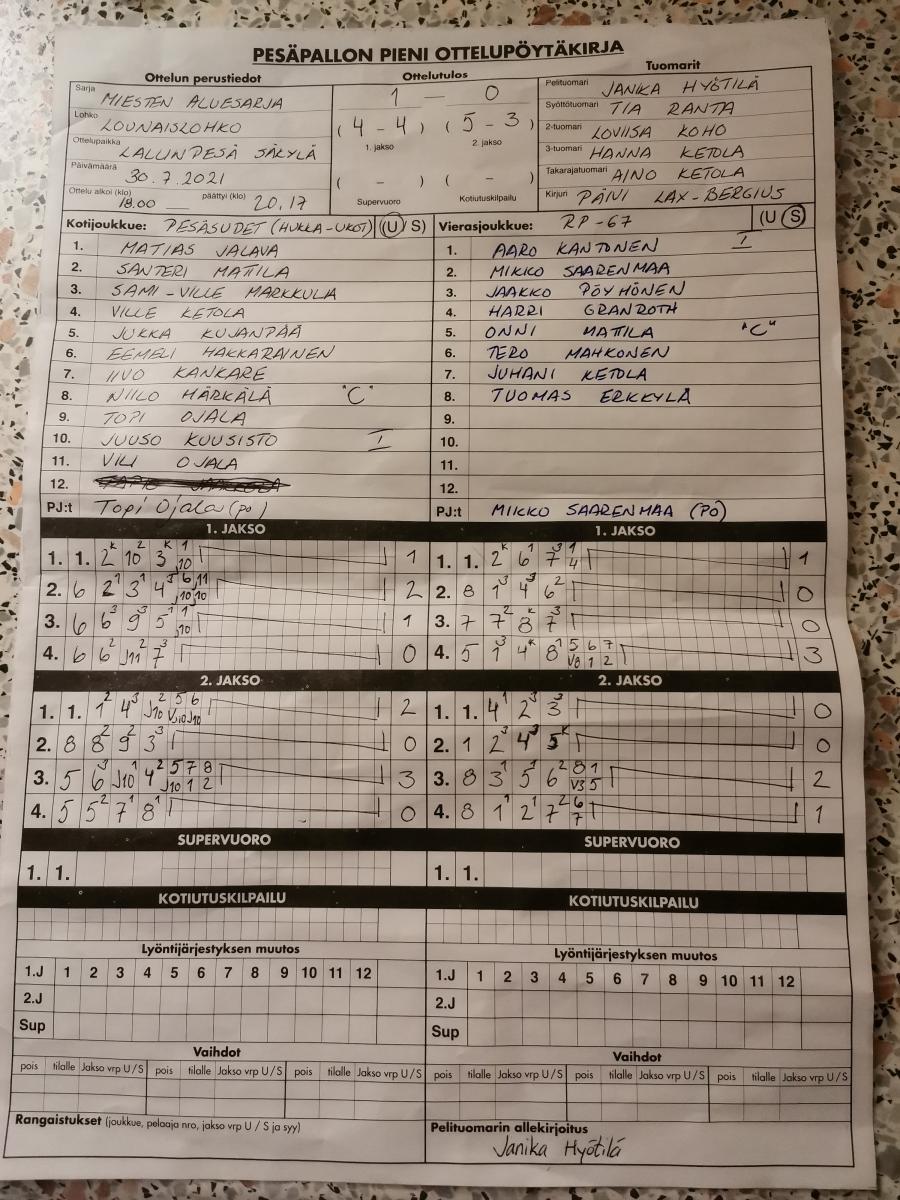 PESÄPALLON PIENI OTTELUPÖYTÄKIRJA
Ottelun perustiedot
Sarja MIESTEN ALUESARJA
Lohko LOUNAISLOHKO
Ottelupaikka LALLINPESÄ SÄKYLÄ
Päivämäärä 30.7.2021
Ottelu alkoi (klo) 18.00 päättyi (klo) 20.17
Ottelutulos
1 — 0
(4 - 4) (5 - 3)
1. jakso 2. jakso
( - ) ( - )
Supervuoro Kotiutuskilpailu
Tuomarit
Pelituomari JANIKA HYÖTILÄ
Syöttötuomari TIA RANTA
2-tuomari LOVIISA KOHO
3-tuomari HANNA KETOLA
Takarajatuomari AINO KETOLA
Kirjuri PÄIVI LAX-BERGIUS
Kotijoukkue: PESÄSUDET (HUKKA-UKOT) (U S)
1. MATIAS JALAVA
2. SANTERI MATTILA
3. SAMI-VILLE MARKKULA
4. VILLE KETOLA
5. JUKKA KUJANPÄÄ
6. EEMELI HAKKARAINEN
7. IIVO KANKARE
8. NIILO HÄRKÄLÄ "C"
9. TOPI OJALA
10. JUUSO KUUSISTO I
11. VILI OJALA
12.
PJ:t Topi Ojala (PO)
Vierasjoukkue: RP-67 (U S)
1. AARO KANTONEN I
2. MIKKO SAARENMAA
3. JAAKKO PÖYHÖNEN
4. HARRI GRANROTH
5. ONNI MATTILA "C"
6. TERO MAHKONEN
7. JUHANI KETOLA
8. TUOMAS ERKKYLÄ
9.
10.
11.
12.
PJ:t MIKKO SAARENMAA (PO)
1. JAKSO
1. 1. 2K 10 2 3K 1 ,10 1
2. 6 2 1 3 1 4 3 6 J11 J10 J10 2
3. 6 6 3 9 3 5 1 1 J10 1
4. 6 6 2 J11 2 7 3 0
1. JAKSO
1. 1. 2K 6 1 7 3 1 4 1
2. 8 1 3 4 3 6 2 0
3. 7 7 2 8K 7 3 0
4. 5 1 3 4K 8 1 5 6 7 V8 1 2 3
2. JAKSO
1. 1. 1 2 4 3 J10 2 5 6 V10 J10 2
2. 8 8 2 9 2 3 3 0
3. 5 6 3 J10 1 4 2 5 7 8 J10 1 2 3
4. 5 5 2 7 1 8 1 0
2. JAKSO
1. 1. 4 1 2 3 3 3 0
2. 1 2 3 4 3 5K 0
3. 8 3 1 5 1 6 2 8 1 V3 5 2
4. 8 1 1 2 1 7 2 6 7 1
SUPERVUORO
1. 1.
SUPERVUORO
1. 1.
KOTIUTUSKILPAILU
KOTIUTUSKILPAILU
Lyöntijärjestyksen muutos
1.J 1 2 3 4 5 6 7 8 9 10 11 12
2.J
Sup
Lyöntijärjestyksen muutos
1.J 1 2 3 4 5 6 7 8 9 10 11 12
2.J
Sup
Vaihdot
pois tilalle Jakso vrp U/S pois tilalle Jakso vrp U/S pois tilalle Jakso vrp U/S
Vaihdot
pois tilalle Jakso vrp U/S pois tilalle Jakso vrp U/S pois tilalle Jakso vrp U/S
Rangaistukset (joukkue, pelaaja nro, jakso vrp U / S ja syy)
Pelituomarin allekirjoitus
Janika Hyötilä